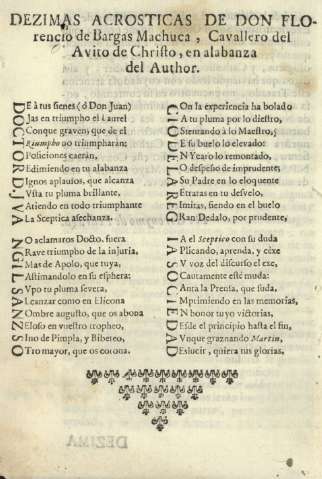 DEZIMAS ACROSTICAS DE DON FLO-
rencio de Bargas Machuca, Cavallero del
Avito de Christo, en alabanza
del Author.
DE à tus sienes (ó Don Juan)
OJas en triumpho el Laurel
Conque graves; que de el
Triumpho no triumpharán;
OPosiciones caerán,
REdimiendo en tu alabanza
DIgnos aplausos, que alcanza
IVsta tu pluma brillante,
VAtiendo en todo triumphante
A La Sceptica asechanza.
NO aclamaros Docto, fuera
GRave triumpho de la injuria,
IMas de Apolo, que tuya,
LAstimandolo en su esphera:
SVpo tu pluma severa,
ALcanzar como en Elicona
NOmbre augusto, que os abona
ZEloso en vuestro tropheo,
SIno de Pimpla, y Bibereo,
OTro mayor, que os corona.
COn la experiencia ha bolado
IA tu pluma por lo diestro,
OStentando a lo Maestro,
DE su buelo lo elevado:
EN Ycaro lo remontado,
LO despeso de imprudente;
A Su Padre en lo eloquente
REtratas en tu desvelo,
EImitas, siendo en el buelo
GRan Dedalo, por prudente,
IA el Sceptico con su duda
APlicando, aprenda, y exixe
SV voz del discurso el exe,
OCautamente está muda:
CAnta la Prensa, que suda,
IMprimiendo en las memorias,
EN honor tuyo victorias,
DEsde el principio hasta el fin,
AVnque graznando Martin,
DEslucir, quiera tus glorias,